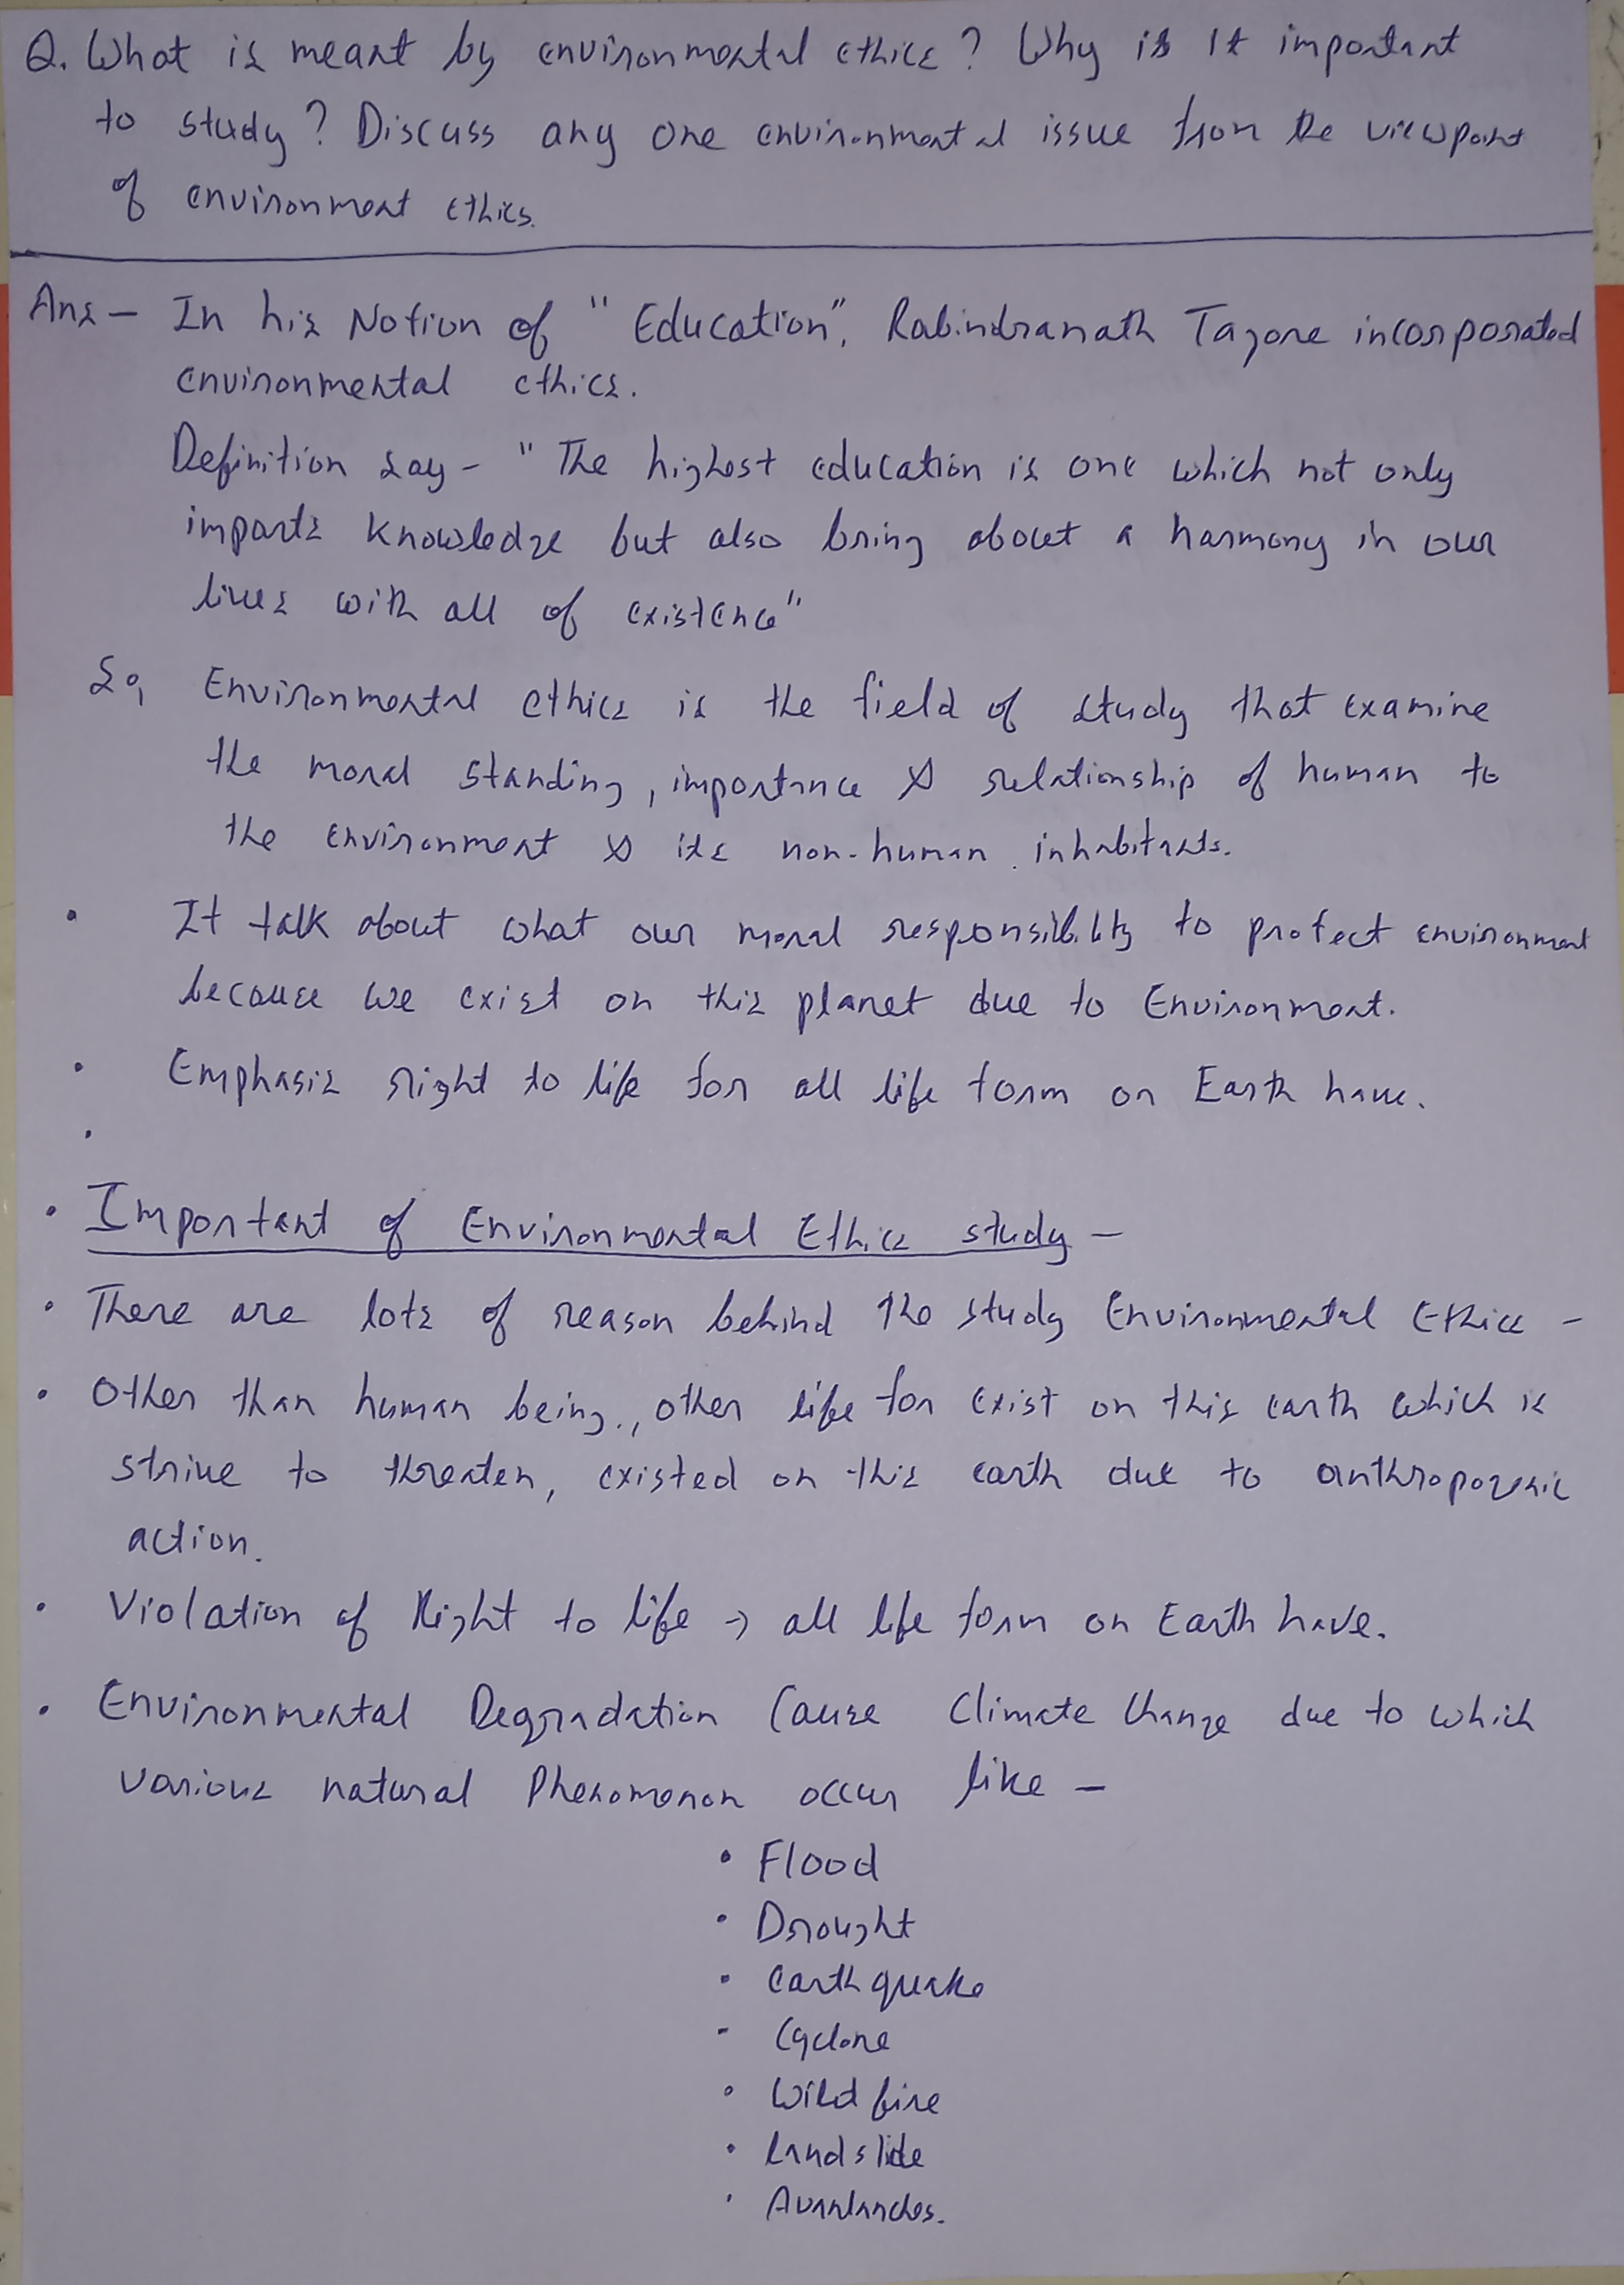 Q. What is meant by environmental ethics? Why is it important
to study? Discuss any one environmental issue from the viewpoint
of environment ethics.
Ans - In his Notion of "Education", Rabindranath Tagore incorporated
environmental ethics.
Definition say - "The highest education is one which not only
imparts knowledge but also bring about a harmony in our
lives with all of existence"
So, Environmental ethics is the field of study that examine
the moral standing, importance & relationship of human to
the environment & its non-human inhabitants.
• It talk about what our moral responsibility to protect environment
because we exist on this planet due to Environment.
• Emphasis right to life for all life form on Earth have.
•
• Important of Environmental Ethics study -
• There are lots of reason behind the study Environmental Ethics -
• Other than human being, other life for exist on this earth which is
strive to threaten, existed on this earth due to anthropogenic
action.
• Violation of Right to life → all life form on Earth have.
• Environmental Degradation Cause Climate Change due to which
various natural Phenomenon occur like -
• Flood
• Drought
• Earthquake
- Cyclone
• Wild fire
• Landslide
• Avanlanches.